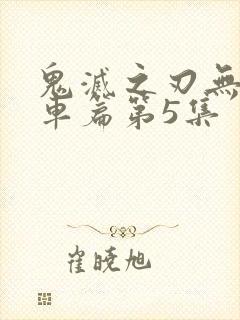 鬼滅之刃無
車篇第5集
崔曉旭